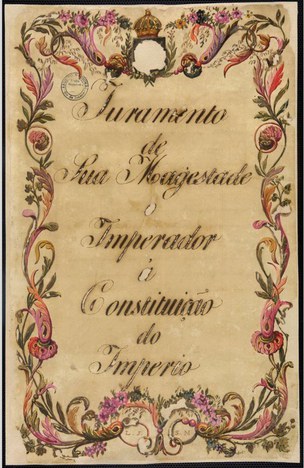 Juramento
de
Sua Magestade
o
Imperador
á
Constituição
do
Imperio